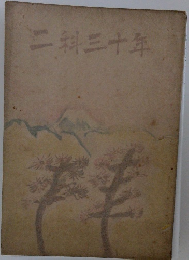 二科三十年